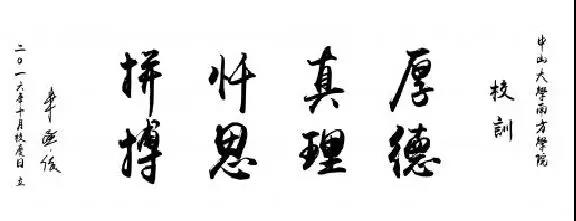 中山大學南方學院
校訓
厚德
真理
忏思
拼搏
二〇一六年十月校慶日立